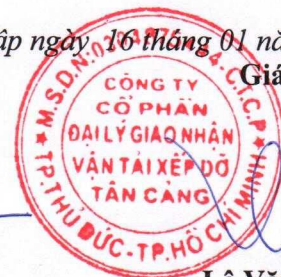 ập ngày 16 tháng 01 nă
Giá
M.S.D.N:
C.T.C.P
CÔNG TY
CỔ PHẦN
ĐẠI LÝ GIAO NHẬN
VẬN TẢI XẾP DỠ
TÂN CẢNG
TP.THỦ ĐỨC-TP.HỒ CHÍ MINH